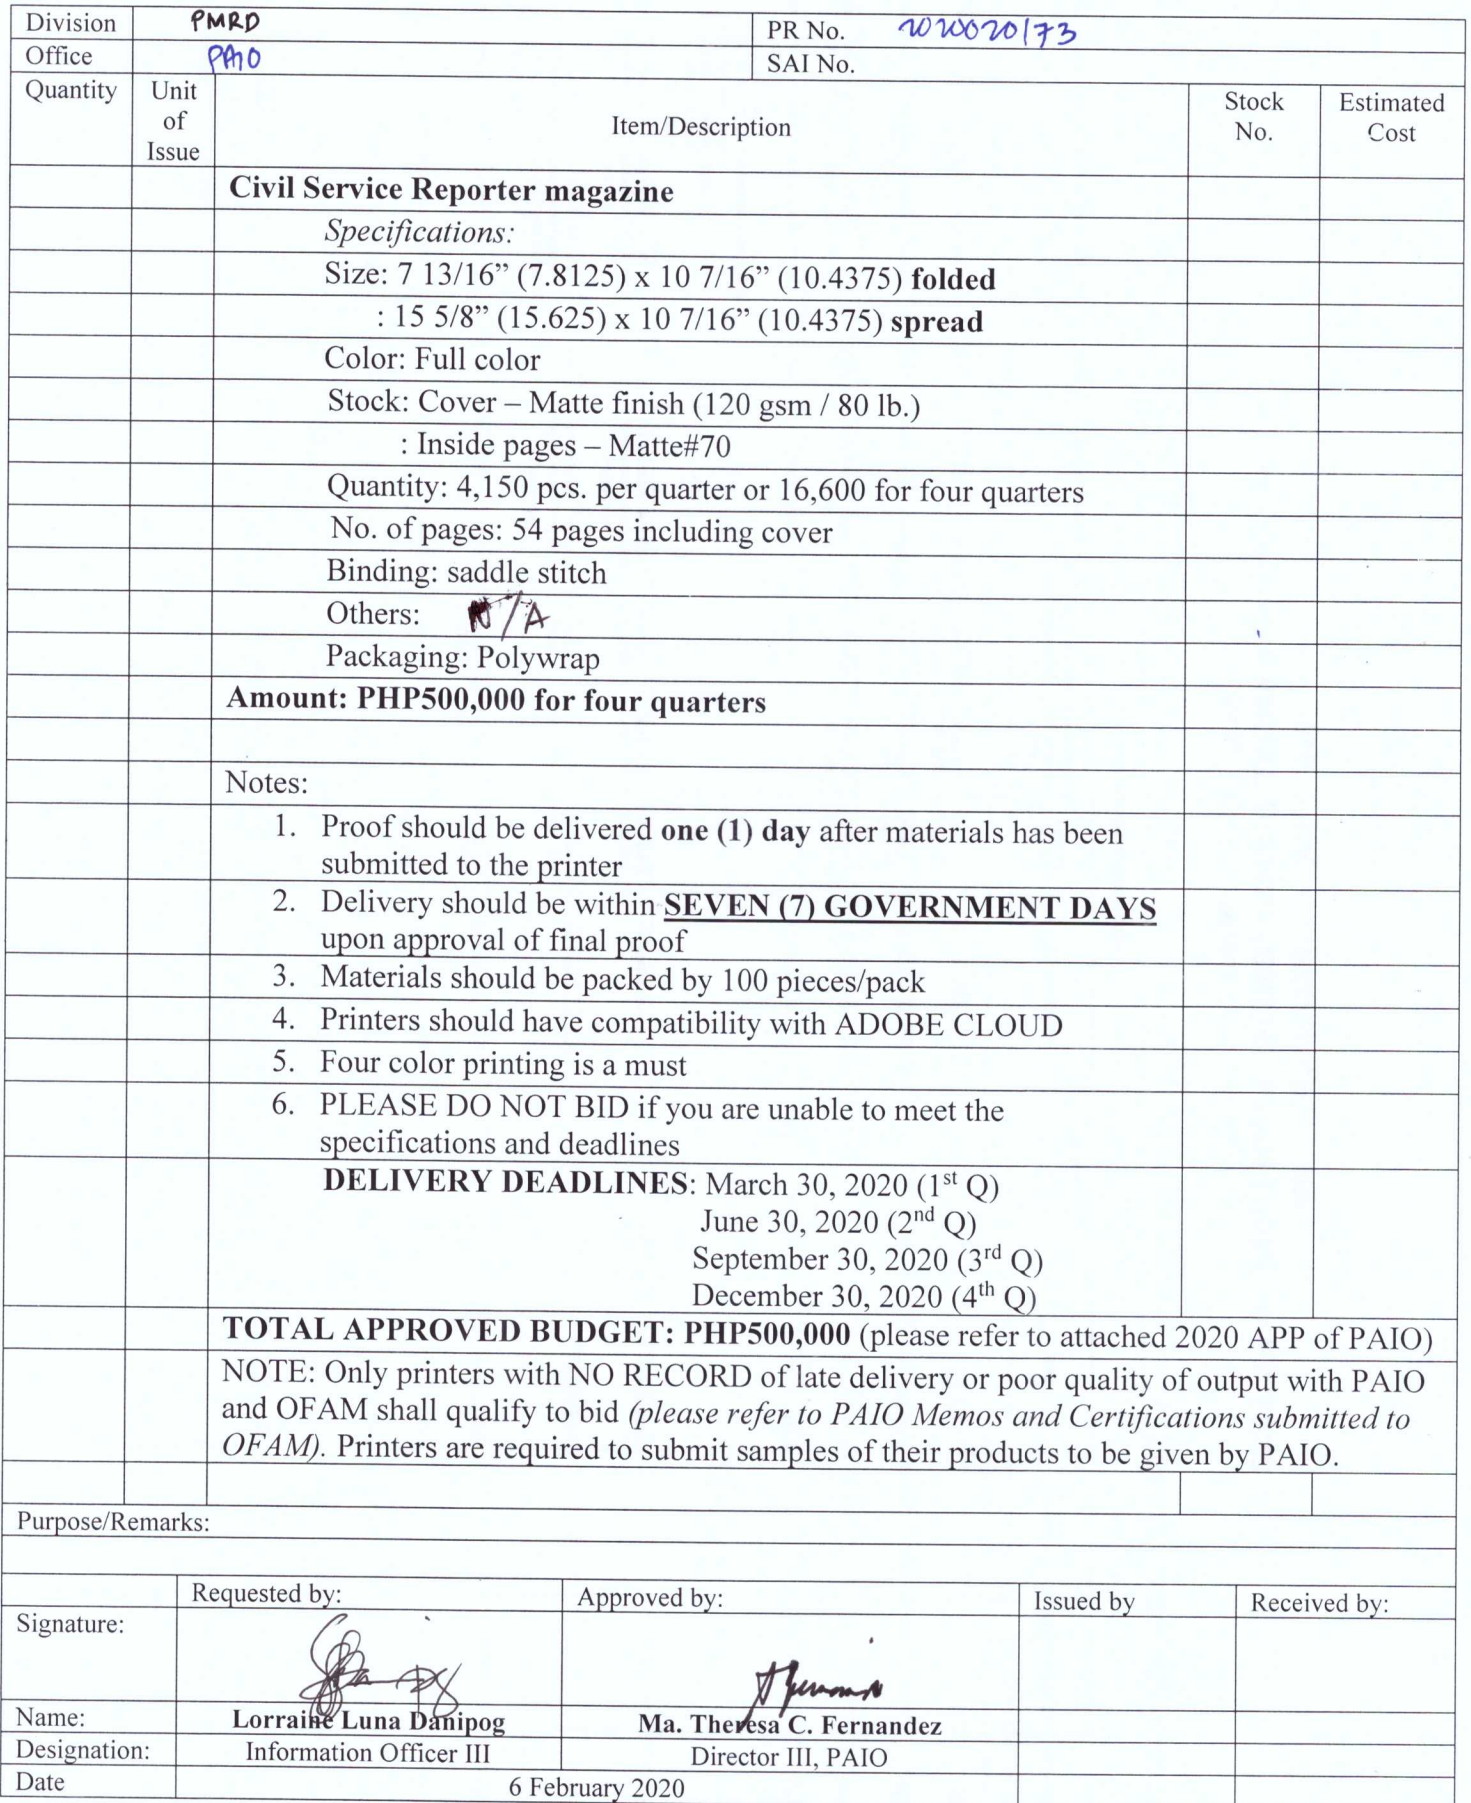 Division PMRD PR No. 2020020173
Office PAIO SAI No.
Quantity Unit of Issue Item/Description Stock No. Estimated Cost
Civil Service Reporter magazine
Specifications:
Size: 7 13/16” (7.8125) x 10 7/16” (10.4375) folded
: 15 5/8” (15.625) x 10 7/16” (10.4375) spread
Color: Full color
Stock: Cover – Matte finish (120 gsm / 80 lb.)
: Inside pages – Matte#70
Quantity: 4,150 pcs. per quarter or 16,600 for four quarters
No. of pages: 54 pages including cover
Binding: saddle stitch
Others: N/A
Packaging: Polywrap
Amount: PHP500,000 for four quarters
Notes:
1. Proof should be delivered one (1) day after materials has been
submitted to the printer
2. Delivery should be within SEVEN (7) GOVERNMENT DAYS
upon approval of final proof
3. Materials should be packed by 100 pieces/pack
4. Printers should have compatibility with ADOBE CLOUD
5. Four color printing is a must
6. PLEASE DO NOT BID if you are unable to meet the
specifications and deadlines
DELIVERY DEADLINES: March 30, 2020 (1st Q)
June 30, 2020 (2nd Q)
September 30, 2020 (3rd Q)
December 30, 2020 (4th Q)
TOTAL APPROVED BUDGET: PHP500,000 (please refer to attached 2020 APP of PAIO)
NOTE: Only printers with NO RECORD of late delivery or poor quality of output with PAIO
and OFAM shall qualify to bid (please refer to PAIO Memos and Certifications submitted to
OFAM). Printers are required to submit samples of their products to be given by PAIO.
Purpose/Remarks:
Requested by: Approved by: Issued by Received by:
Signature:
Name: Lorraine Luna Danipog Ma. Theresa C. Fernandez
Designation: Information Officer III Director III, PAIO
Date 6 February 2020